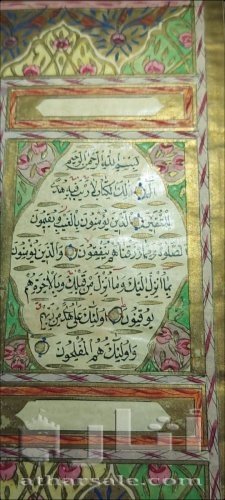 بسم الله الرحمن الرحيم
الم ذلك الكتاب لا ريب فيه هدى
للمتقين الذين يؤمنون بالغيب ويقيمون
الصلوة ومما رزقناهم ينفقون والذين يؤمنون
بما أنزل إليك وما أنزل من قبلك وبالآخرة هم
يوقنون أولئك على هدى من ربهم
وأولئك هم المفلحون
atharsale.com